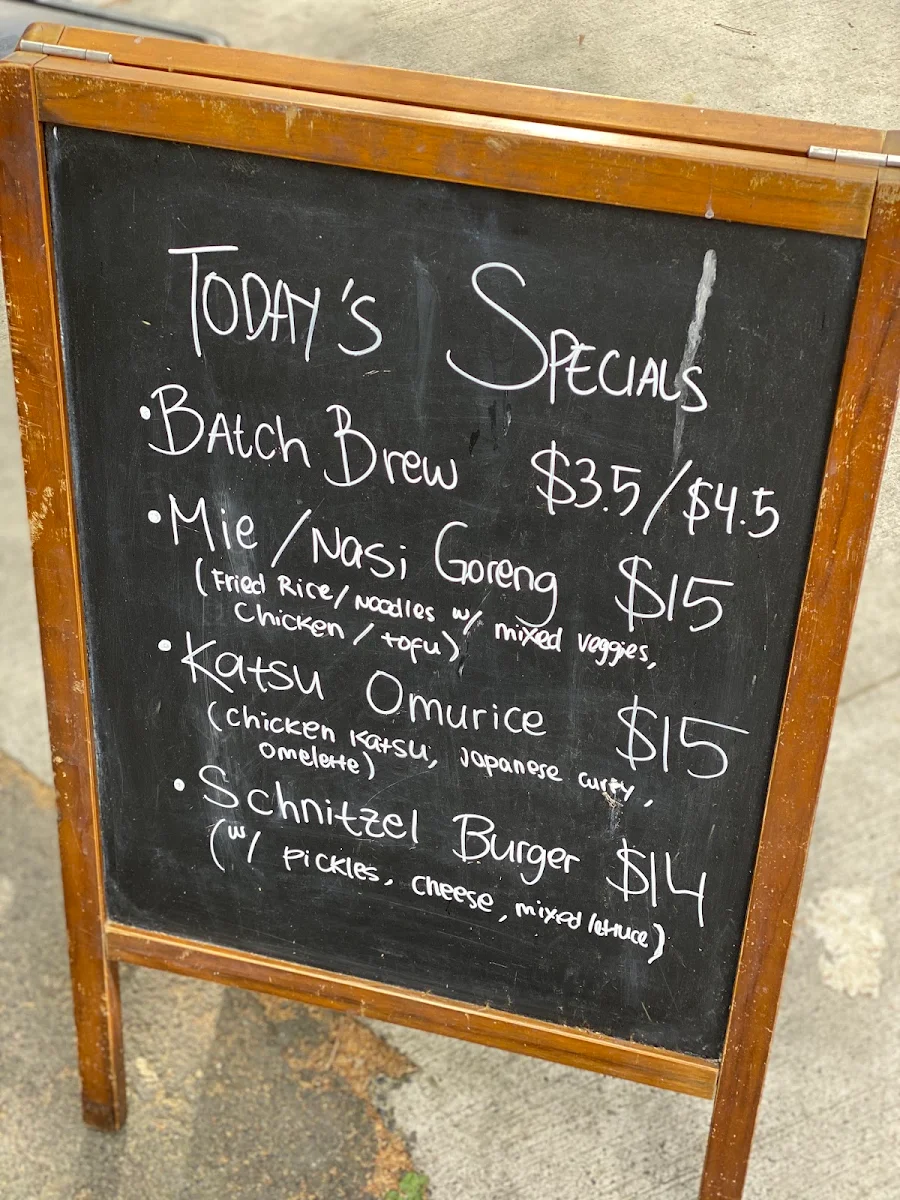 Today's Specials
• Batch Brew $3.5/$4.5
• Mie/Nasi Goreng $15
(Fried Rice/Noodles w/ mixed veggies,
Chicken/tofu)
• Katsu Omurice $15
(Chicken Katsu, Japanese curry,
omelette)
• Schnitzel Burger $14
(w/ pickles, cheese, mixed lettuce)